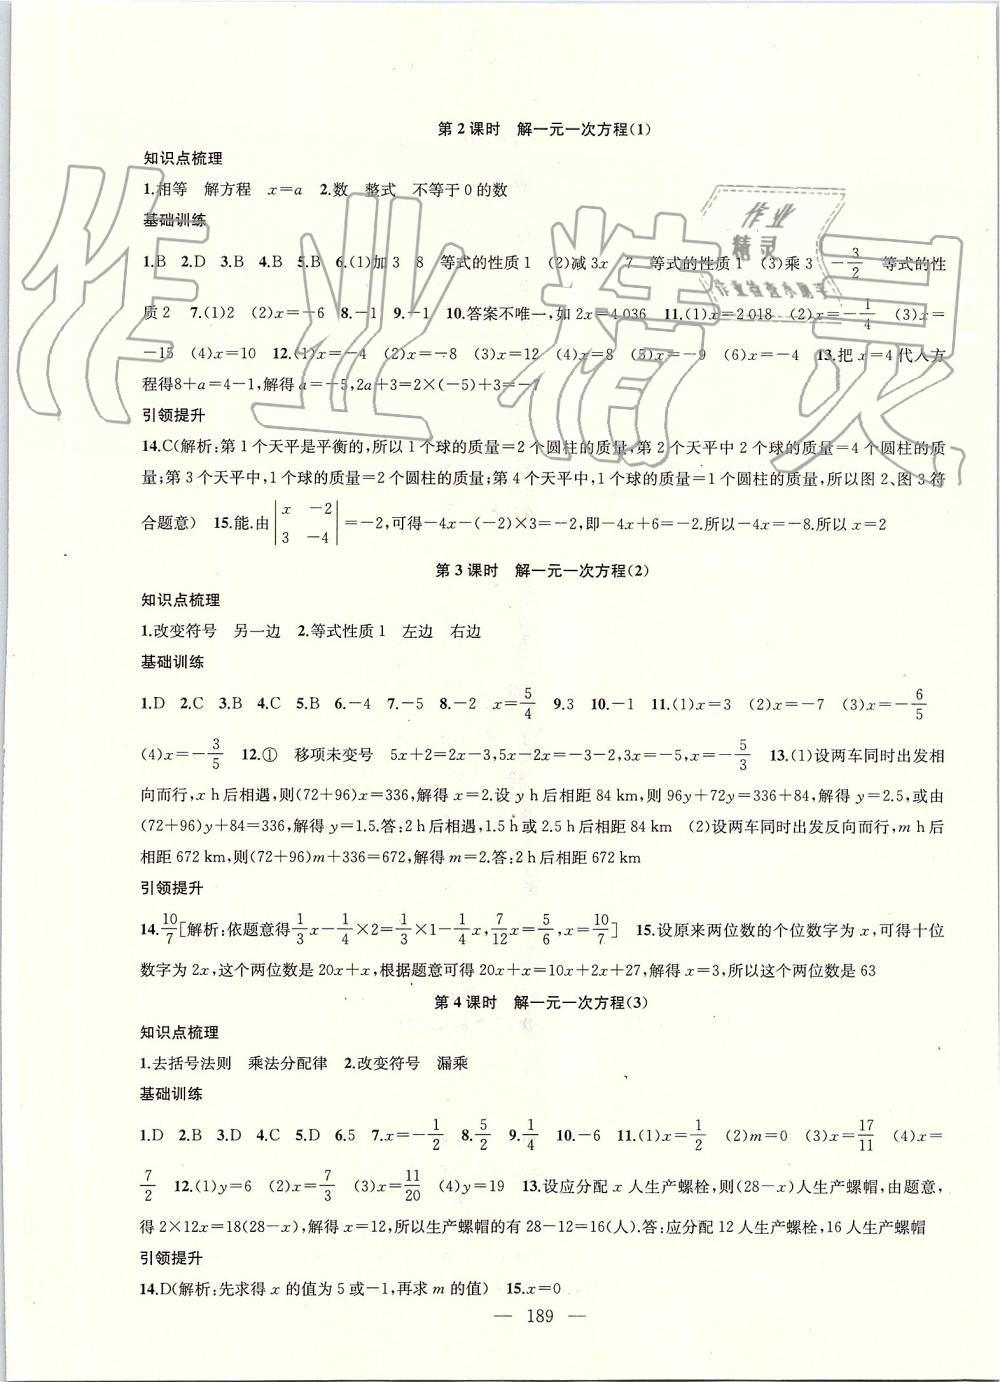 第2课时　解一元一次方程(1)
知识点梳理
1.相等　解方程　x=a　2.数　整式　不等于0的数
基础训练
1.B　2.D　3.B　4.B　5.B　6.(1)加3　8　等式的性质1　(2)减3x　7　等式的性质1　(3)乘3　-3/2　等式的性
质2　7.(1)2　(2)x=-6　8.-1　9.-1　10.答案不唯一,如2x=4 036　11.(1)x=2 018　(2)x=-1/4　(3)x=
-15　(4)x=10　12.(1)x=-4　(2)x=-8　(3)x=12　(4)x=8　(5)x=-9　(6)x=-4　13.把x=4代人方
程得8+a=4-1,解得a=-5,2a+3=2×(-5)+3=-7
引领提升
14.C(解析:第1个天平是平衡的,所以1个球的质量=2个圆柱的质量,第2个天平中2个球的质量=4个圆柱的质
量;第3个天平中,1个球的质量=2个圆柱的质量;第4个天平中,1个球的质量=1个圆柱的质量,所以图2、图3符
合题意)　15.能.由|x　-2　3　-4|=-2,可得-4x-(-2)×3=-2,即-4x+6=-2.所以-4x=-8.所以x=2
第3课时　解一元一次方程(2)
知识点梳理
1.改变符号　另一边　2.等式性质1　左边　右边
基础训练
1.D　2.C　3.B　4.C　5.B　6.-4　7.-5　8.-2　x=5/4　9.3　10.-1　11.(1)x=3　(2)x=-7　(3)x=-6/5
(4)x=-3/5　12.①　移项未变号　5x+2=2x-3,5x-2x=-3-2,3x=-5,x=-5/3　13.(1)设两车同时出发相
向而行,x h后相遇,则(72+96)x=336,解得x=2.设y h后相距84 km,则96y+72y=336+84,解得y=2.5,或由
(72+96)y+84=336,解得y=1.5.答:2 h后相遇,1.5 h或2.5 h后相距84 km　(2)设两车同时出发反向而行,m h后
相距672 km,则(72+96)m+336=672,解得m=2.答:2 h后相距672 km
引领提升
14.10/7[解析:依题意得1/3x-1/4×2=1/3×1-1/4x,7/12x=5/6,x=10/7]　15.设原来两位数的个位数字为x,可得十位
数字为2x,这个两位数是20x+x,根据题意可得20x+x=10x+2x+27,解得x=3,所以这个两位数是63
第4课时　解一元一次方程(3)
知识点梳理
1.去括号法则　乘法分配律　2.改变符号　漏乘
基础训练
1.D　2.B　3.D　4.C　5.D　6.5　7.x=-1/2　8.5/2　9.1/4　10.-6　11.(1)x=1/2　(2)m=0　(3)x=17/11　(4)x=
7/2　12.(1)y=6　(2)x=7/3　(3)x=11/20　(4)y=19　13.设应分配x人生产螺栓,则(28-x)人生产螺帽,由题意,
得2×12x=18(28-x),解得x=12,所以生产螺帽的有28-12=16(人).答:应分配12人生产螺栓,16人生产螺帽
引领提升
14.D(解析:先求得x的值为5或-1,再求m的值)　15.x=0
— 189 —
作业精灵
作业
精灵
作业检查小助手